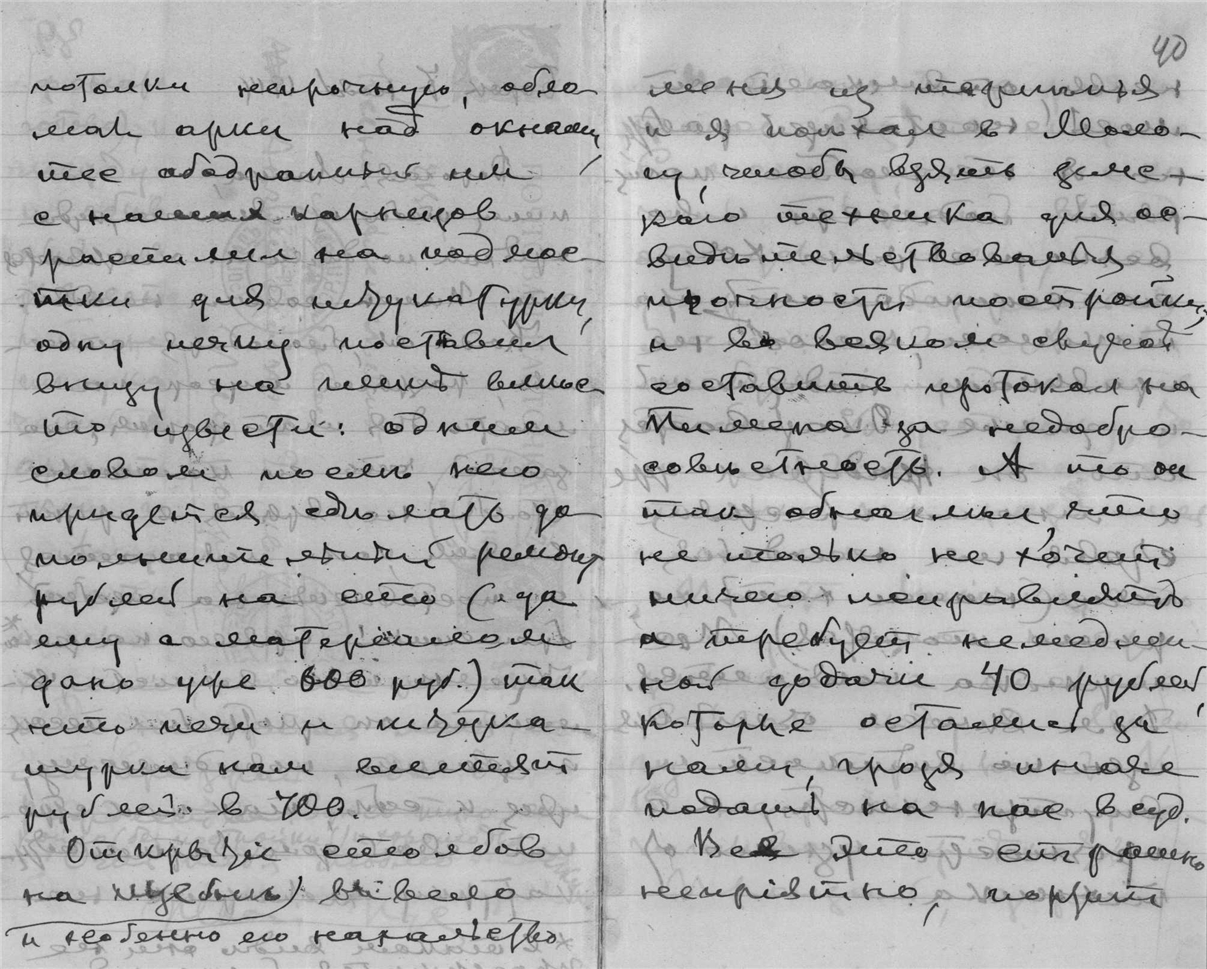 потолки непрочную, обло-
мал арки над окнами,
тес ободранный им
с наших карнизов
распилил на подмос-
тки для штукатурки,
одну печку поставил
внизу на глине вмес-
то извести: одним
словом послѣ него
придется сдѣлать до-
полнительный ремонт
рублей на сто (а да
ему с матерiалом
дано уже 600 руб.) так
что печи и штука-
турка нам влетят
рублей в 700.
Открытiе столбов
на щебнѣ) вывело
и особенно его нахальство
40
меня из терпѣнья
и я поѣхал в Моло-
гу, чтобы взять земс-
каго техника для ос-
видѣтельствованья
прочности постройки,
и во всяком случаѣ
составить протокол на
Пимена за недобро-
совѣстность. А то он
так обнаглѣл, что
не только не хочет
ничего исправлять
а требует немедлен-
ной додачи 40 рублей,
которые остались за
нами, грозя иначе
подать на нас в суд.
Все это страшно
непрiятно, портит